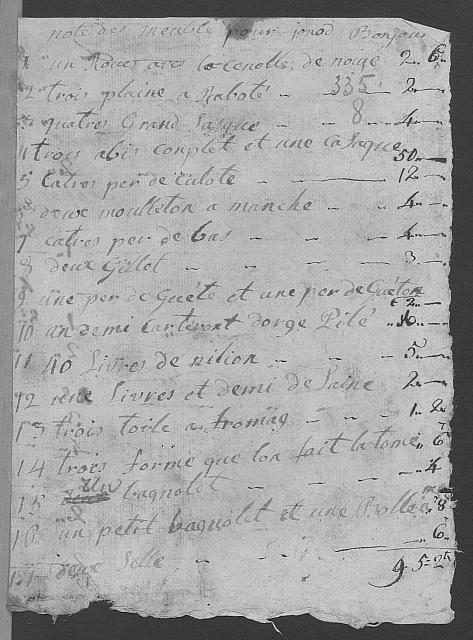 note des meuble pour jonod Bonjour
1 un Roues aves la cenolle de nouge 2 .. 6.
2 trois plaine a Raboté - 335 2 ..
quatres Grand sasque - - 8 4 ..
4 trois abis conplet et une casaque 50 ..
5 Catres per de culote - - 12 ..
deux moulleton a manche - - 4 ..
7 catres per de bas - - - 4 ..
8 deux Gillet - - - 3 ..
9 une per de Guéte et une per de Guéton 2 ..
10 un demi carteront dorge Pilé
11 40 Livres de - - 5 ..
12 une Livres et demi de Laine 2 ..
13 trois toile a fromag - - - 1 .. 2
14 trois forme que lon fait la tome .. 6
15 un bagnolet - - - .. 4
16 un petit bagnolet et une .. 8
17 deux Selle - - - .. 6
9 . 5 = 2